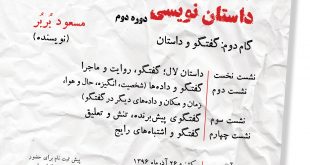 داستان نویسی دوره دوم
مسعود بُربُر
(نویسنده)
گام دوم: گفتگو و داستان
نشست نخست | داستان لال؛ گفتگو، روایت و ماجرا
نشست دوم | گفتگو و داده‌ها (شخصیت، انگیزه، حال و هوا،
زمان و مکان و داده‌های دیگر در گفتگو)
نشست سوم | گفتگوی پیش‌برنده، تنش و تعلیق
نشست چهارم | گفتگو و اشتباه‌های رایج
۲۶ آذرماه ۱۳۹۶
پیش ثبت نام برای حضور